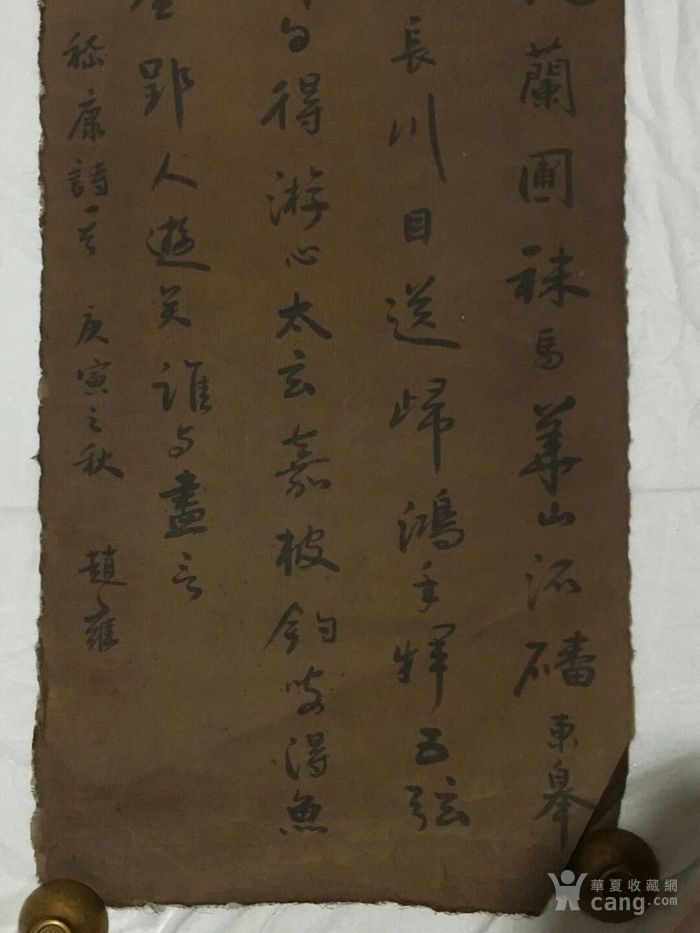 蘭圃秣馬華山流磻東皋
長川目送歸鴻手揮五弦
自得游心太玄嘉彼釣叟得魚
郢人逝矣誰与盡言
嵇康詩一首 庚寅之秋 趙雍
華夏收藏網
cang.com